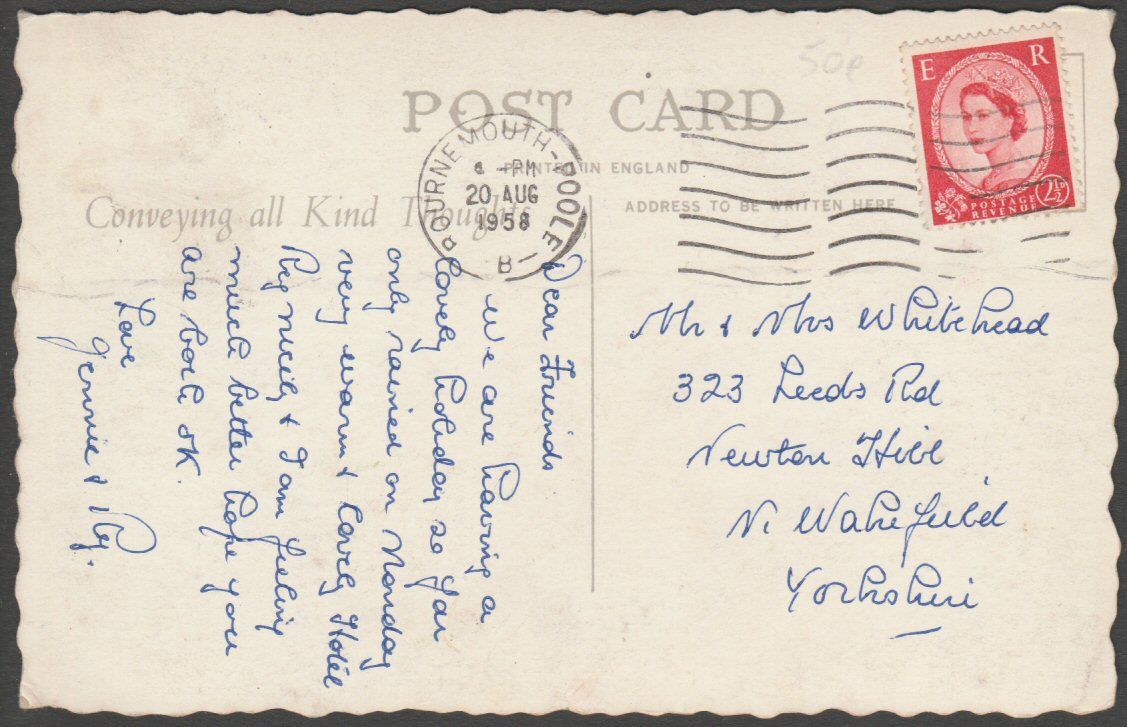 50p
POST CARD
PRINTED IN ENGLAND
Conveying all Kind Thoughts
ADDRESS TO BE WRITTEN HERE
BOURNEMOUTH-POOLE
-PM
20 AUG
1958
B
E R
POSTAGE
REVENUE
2½D
Dear Friends
We are having a
lovely holiday so far
only rained on Monday
very warm & lovely Hotel
Reg nicely & I am feeling
much better hope you
are both OK.
Love
Jennie & Reg.
Mr & Mrs Whitehead
323 Leeds Rd
Newton Hill
N. Wakefield
Yorkshire